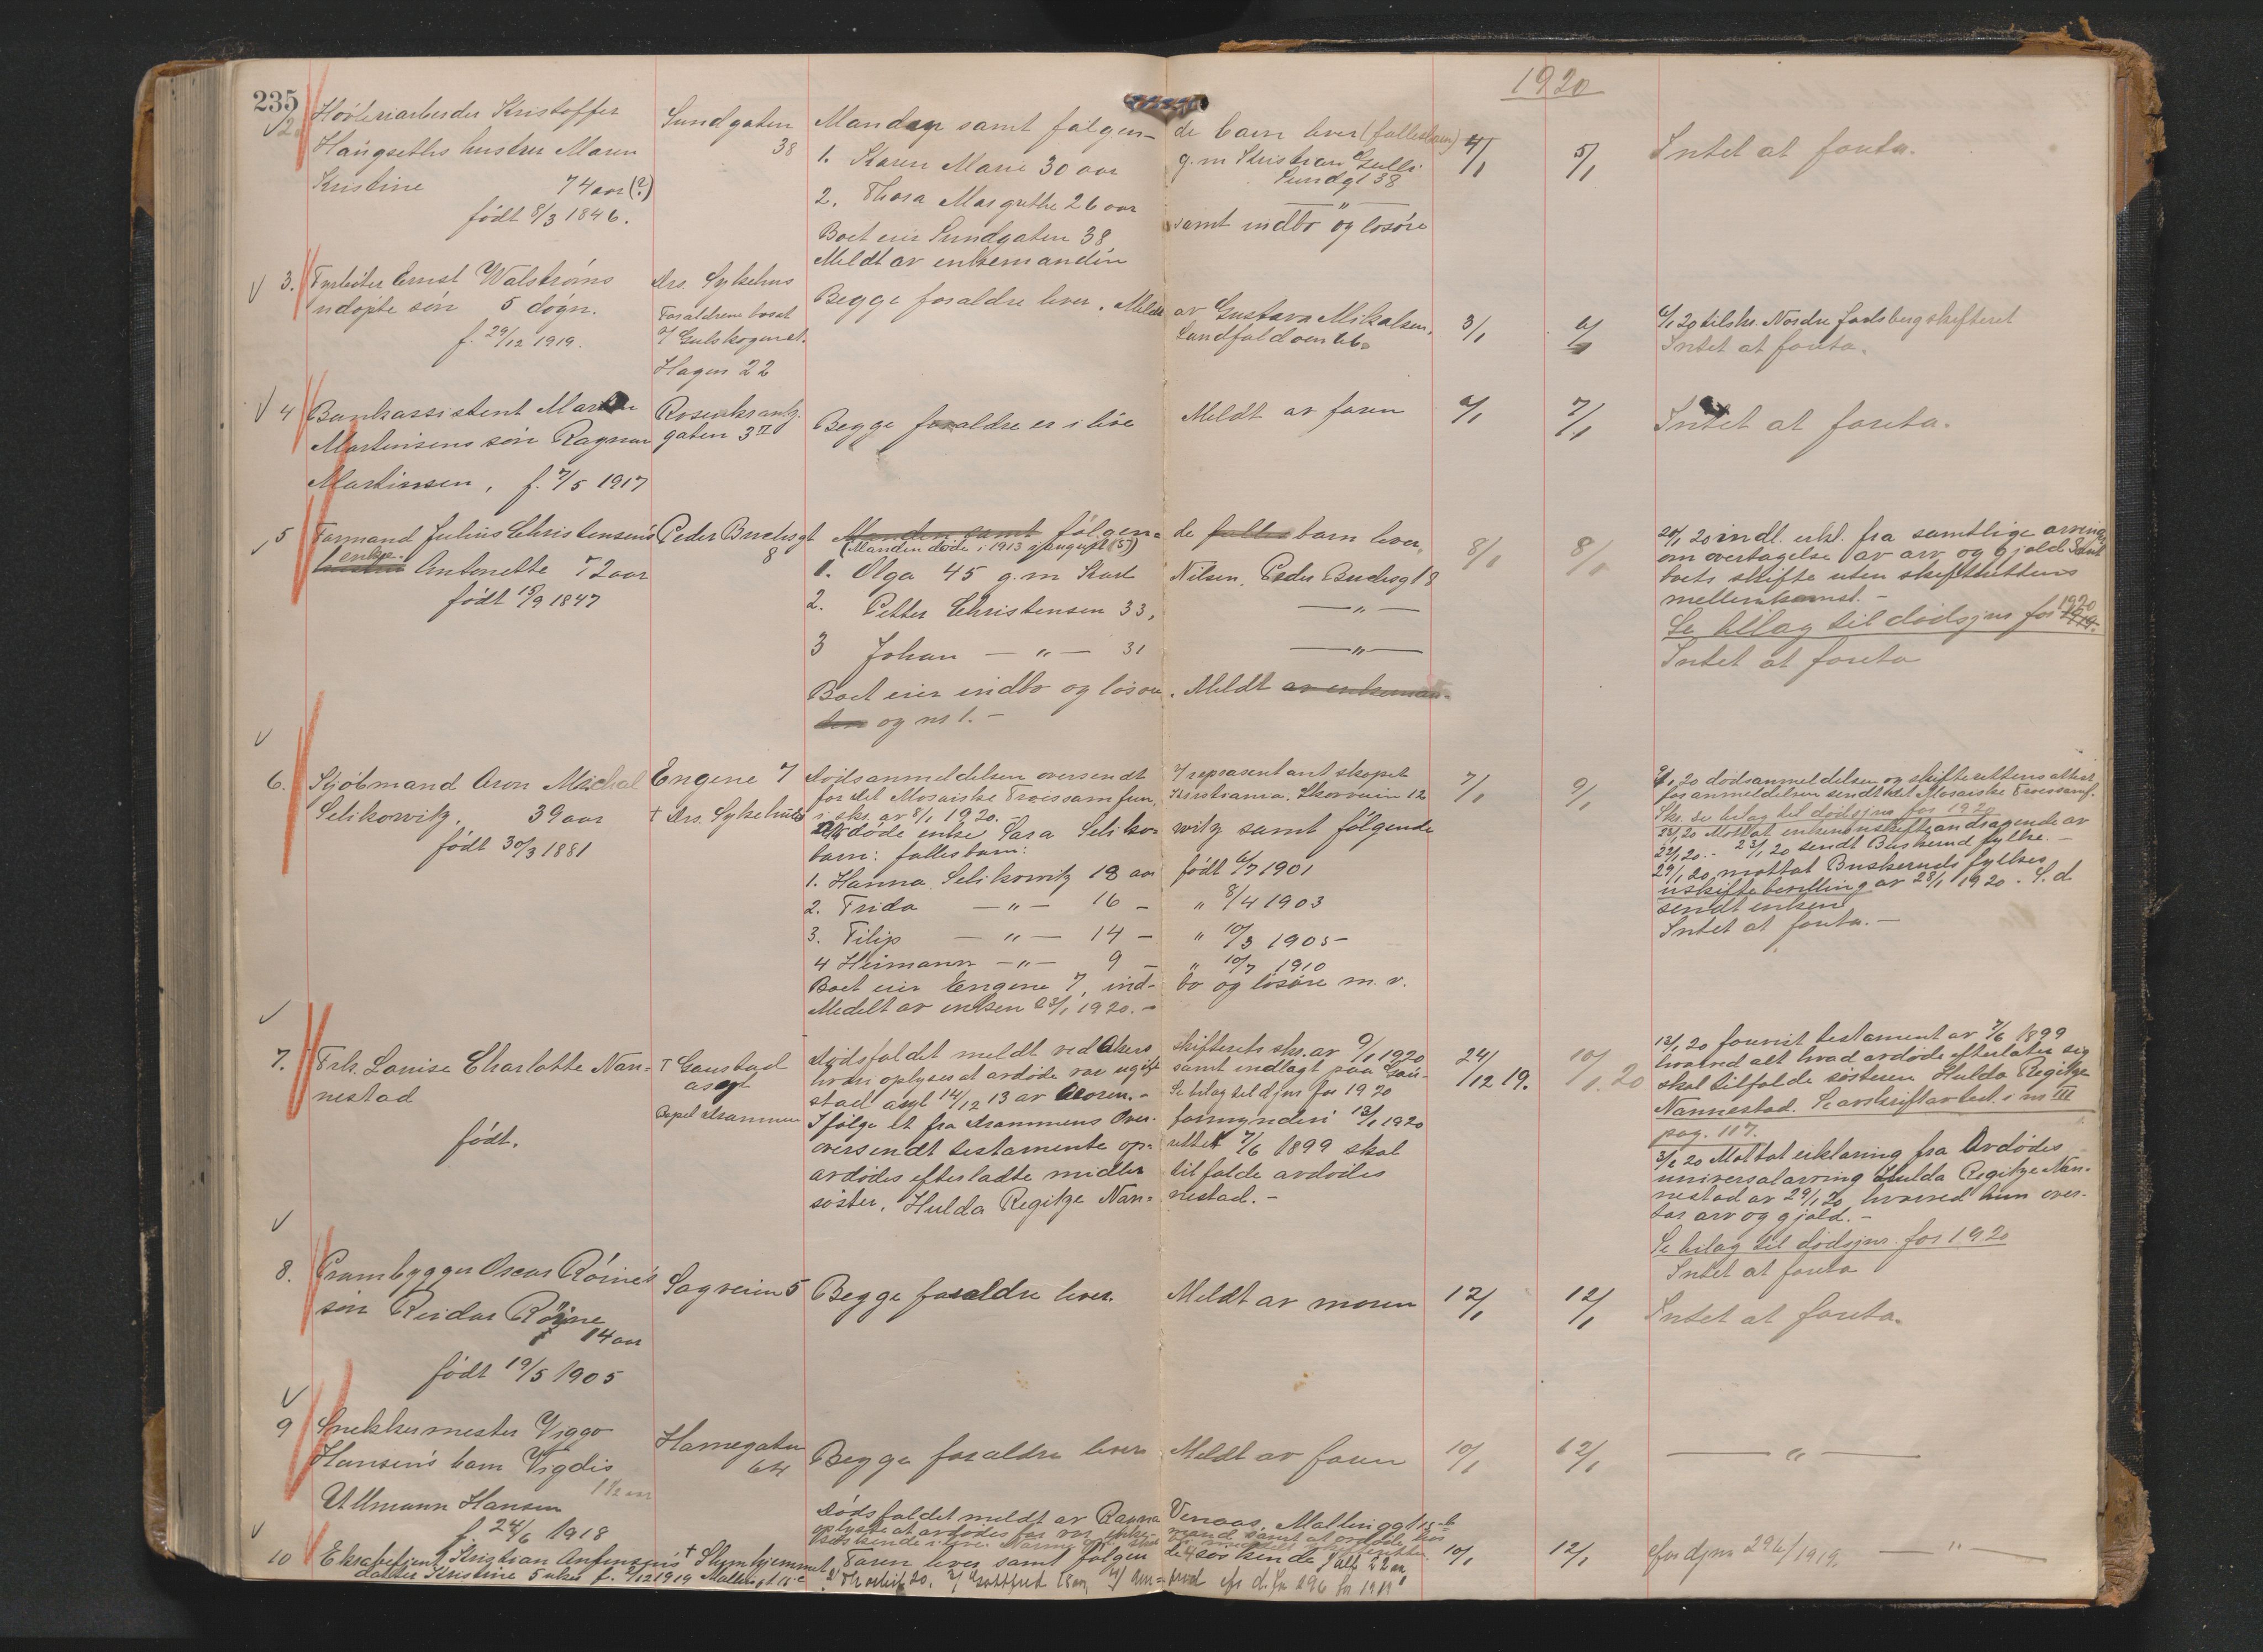 235
1920
2.
Høvleriarbeider Kristoffer
Haugseths hustru Maren
Kristine 74 aar (?)
født 8/3 1846.
Sundgaten
38
Manden samt følgen- de barn lever (fællesbarn)
1. Karen Marie 30 aar g.m Kristian Gulli
Sundgt 38
2. Thora Margrethe 26 aar — " —
Boet eier Sundgaten 38 samt indbo og løsøre
Meldt av enkemanden
4/1
5/1
Intet at foreta.
3.
Fyrbøter Ernst Walstrøms
udøpte søn 5 døgn.
f. 29/12 1919.
Drs. Sykehus
Forældrene bosat
Hagen 22
Begge forældre lever. Meldt av Gustava Mikalsen.
3/1
6/1 20 tilskr. Nordre Jarlsberg skifteret
Intet at foreta.
4
Bankassistent
Martinsens søn Ragnar
Martinsen, f. 7/5 1917
Rosenkrantz-
gaten 3 II
Begge forældre er i live Meldt av faren
6/1
7/1
Intet at foreta.
5
Formand Julius Christensens
enke
hustru Antonette 72 aar
født 15/9 1847
Peder Buchsgt
8
Manden samt følgen- de fælles barn lever,
(Manden døde i 1913
1. Olga 45 g.m Karl Nilsen, Peder Buchsgt 8
2. Petter Christensen 33, — " —
3 Johan — " — 31 — " —
Boet eier indbo og løsøre. Meldt av enkeman-
den og nr 1. -
8/1
8/1
20/1 20 indl. erkl. fra samtlige arvinger
om overtagelse av arv og gjæld samt
boets skifte uten skifterettens
mellemkomst. -
Se bilag til dødsjur for 1920
1919.
Intet at foreta
6.
Kjøbmand Aron Michal
Selikowitz, 39 aar
født 30/3 1881
Engene 7
† Drs. Sykehus
Dødsanmeldelsen oversendt
for Det Mosaiske Troessamfun, Kristiania. 12
i skr. av 8/1 1920. -
Avdøde enke Sara Seliko- witz samt følgende
barn: fællesbarn:
1. Hanna Selikowitz 18 aar født 6/7 1901
2. Frida — " — 16 — " 8/4 1903
3. Filip — " — 14 — " 10/3 1905 -
4 Heimann — " — 9 — " 10/7 1910
Boet eier Engene 7, ind- bo og løsøre m.v.
Medelt av enken 23/1 1920. -
7/1
9/1
9/1 20 dødsanmeldelsen og skifterettens attest
for anmeldelsen sendt Det Mosaiske Troessamf.
Skr. se bilag til dødsjur for 1920
23/1 20 Mottat enkens uskifteandragende av
22/1 20. - 23/1 20 sendt Buskerud fylke. -
29/1 20 mottat Buskeruds fylkes
uskiftebevilling av 28/1 1920. S.d.
sendt enken
Intet at foreta. -
7.
Frk. Louise Charlotte Nan-
nestad
født.
† Gaustad
asyl
Dødsfaldet meldt ved Akers skifterets skr. av 9/1 1920
hvori oplyses at avdøde var ugift samt indlagt paa Gau-
stad asyl 14/12 13 av Se bilag til djur for 1920
Ifølge fra Drammens Over- formynderi 13/1 1920
oversendt testamente op- rettet 7/6 1899 skal
avdødes efterladte midler tilfalde avdødes
søster, Hulda Regitze Nan- nestad. -
24/12 19.
10/1 20
13/1 20 testament av 7/6 1899
hvorved alt hvad avdøde efterlater sig
skal tilfalde søsteren Hulda Regitze
Nannestad. Se avskrift av test. i nr III
pag. 117.
3/2 20 Mottat erklæring fra avdødes
universalarving Hulda Regitze Nan-
nestad av 29/1 20, hvorved hun over-
tar arv og gjæld. -
Se bilag til dødsjur. for 1920
Intet at foreta
8.
Prambygger Oscar Røine's
søn Reidar Røine
14 aar
født 19/5 1905
Sagveien 5
Begge forældre lever. Meldt av moren
12/1
12/1
Intet at foreta.
9
Snekkermester Viggo
Hansens barn Vigdis
1½ aar
Ullmann Hansen
f. 24/6 1918
Havnegaten
64
Begge forældre lever Meldt av faren
10/1
12/1
— " —
10
Ekstrabetjent Kristian
datter Kristine 5 uker f. 2/12 1919
Dødsfaldet meldt av Ragna Venaas,
Faren lever samt følgen- de 4 søskende
10/1
12/1
cfr djur 296/1919. — " —